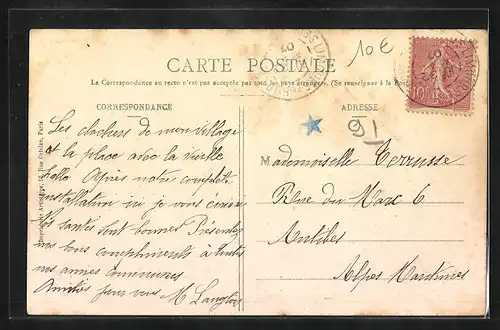 10€
CARTE POSTALE
La Correspondance au recto n'est pas acceptée par tous les pays étrangers. (Se renseigner à la Poste
CORRESPONDANCE
ADRESSE
91
Les clochers de mon village
et la place avec la vieille
halle Après notre complète
installation ici je vous
Nos santés sont bonnes Présentez
mes bons compliments à toutes
nos amies communes
Amitiés pour vous M. Langlois
Mademoiselle Terrusse
Rue du Marc 6
Antibes
Alpes Maritimes
10